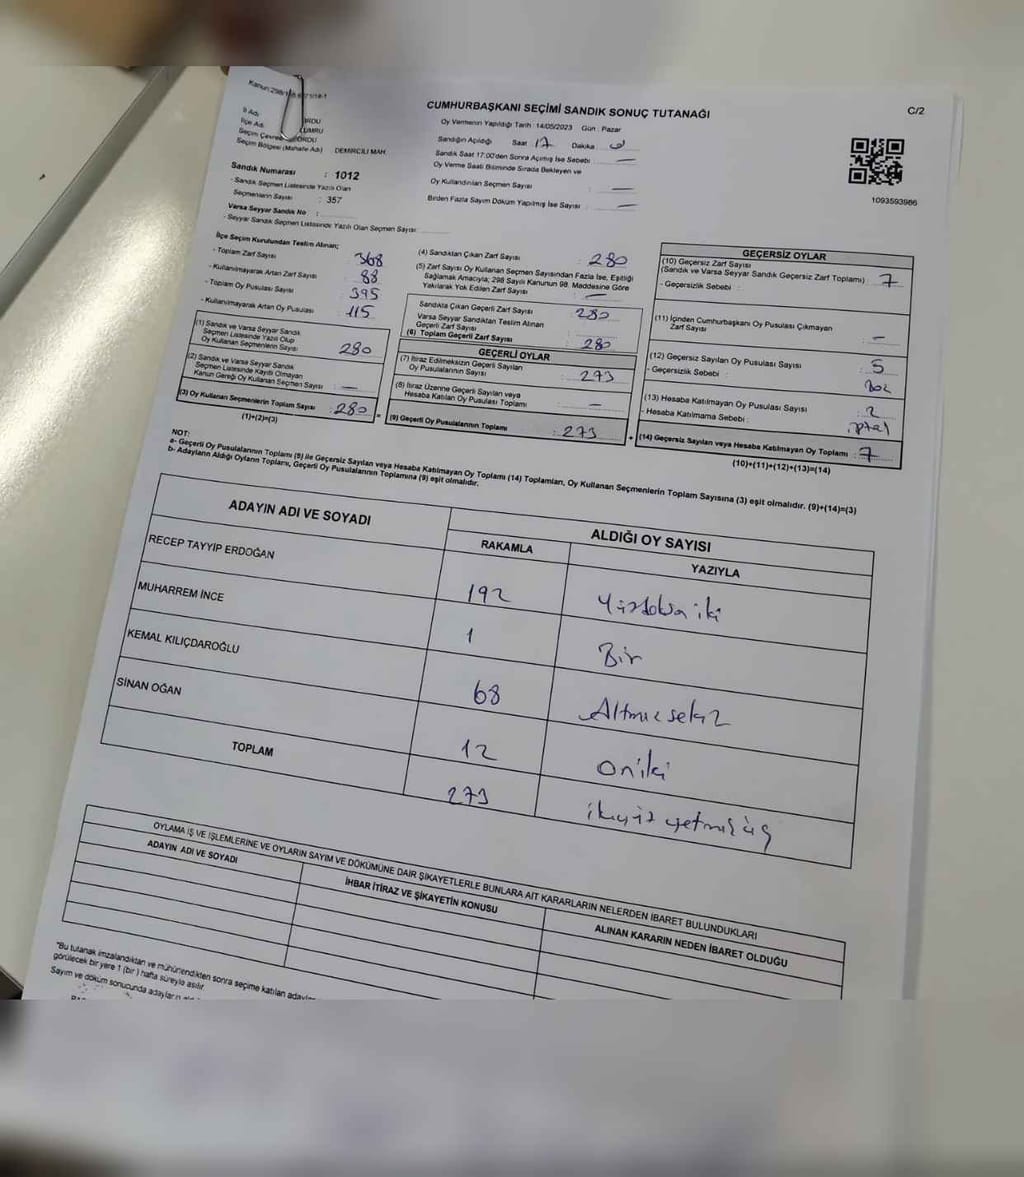 CUMHURBAŞKANI SEÇİMİ SANDIK SONUÇ TUTANAĞI
C/2
İl Adı
İlçe Adı
Seçim Çevresi ORDU
Seçim Bölgesi (Mahalle Adı) DEMİRCİLİ MAH.
Sandık Numarası : 1012
- Sandık Seçmen Listesinde Yazılı Olan
Seçmenlerin Sayısı : 357
Varsa Seyyar Sandık No :
- Seyyar Sandık Seçmen Listesinde Yazılı Olan Seçmen Sayısı :
Oy Vermenin Yapıldığı Tarih : 14/05/2023 Gün : Pazar
Sandığın Açıldığı Saat 17 Dakika
Sandık Saat 17:00'den Sonra Açılmış İse Sebebi : —
Oy Verme Saati Bitiminde Sırada Bekleyen ve
Oy Kullandırılan Seçmen Sayısı : —
Birden Fazla Sayım Döküm Yapılmış İse Sayısı : —
1093593986
İlçe Seçim Kurulundan Teslim Alınan;
- Toplam Zarf Sayısı : 368
- Kullanılmayarak Artan Zarf Sayısı : 88
- Toplam Oy Pusulası Sayısı : 395
- Kullanılmayarak Artan Oy Pusulası : 115
(1) Sandık ve Varsa Seyyar Sandık
Seçmen Listesinde Yazılı Olup
Oy Kullanan Seçmenlerin Sayısı : 280
(2) Sandık ve Varsa Seyyar Sandık
Seçmen Listesinde Kayıtlı Olmayan
Kanun Gereği Oy Kullanan Seçmen Sayısı : —
(3) Oy Kullanan Seçmenlerin Toplam Sayısı : 280
(1)+(2)=(3)
(4) Sandıktan Çıkan Zarf Sayısı : 280
(5) Zarf Sayısı Oy Kullanan Seçmen Sayısından Fazla İse, Eşitliği
Sağlamak Amacıyla; 298 Sayılı Kanunun 98. Maddesine Göre
Yakılarak Yok Edilen Zarf Sayısı : —
Sandıkta Çıkan Geçerli Zarf Sayısı : 280
Varsa Seyyar Sandıktan Teslim Alınan
Geçerli Zarf Sayısı :
(6) Toplam Geçerli Zarf Sayısı : 280
GEÇERLİ OYLAR
(7) İtiraz Edilmeksizin Geçerli Sayılan
Oy Pusulalarının Sayısı : 273
(8) İtiraz Üzerine Geçerli Sayılan veya
Hesaba Katılan Oy Pusulası Toplamı : —
(9) Geçerli Oy Pusulalarının Toplamı : 273
GEÇERSİZ OYLAR
(10) Geçersiz Zarf Sayısı
(Sandık ve Varsa Seyyar Sandık Geçersiz Zarf Toplamı) : 7
- Geçersizlik Sebebi :
(11) İçinden Cumhurbaşkanı Oy Pusulası Çıkmayan
Zarf Sayısı : —
(12) Geçersiz Sayılan Oy Pusulası Sayısı : 5
- Geçersizlik Sebebi :
(13) Hesaba Katılmayan Oy Pusulası Sayısı : 2
- Hesaba Katılmama Sebebi : iptal
(14) Geçersiz Sayılan veya Hesaba Katılmayan Oy Toplamı : 7
(10)+(11)+(12)+(13)=(14)
NOT:
a- Geçerli Oy Pusulalarının Toplamı (9) ile Geçersiz Sayılan veya Hesaba Katılmayan Oy Toplamı (14) Toplamları, Oy Kullanan Seçmenlerin Toplam Sayısına (3) eşit olmalıdır. (9)+(14)=(3)
b- Adayların Aldığı Oyların Toplamı, Geçerli Oy Pusulalarının Toplamına (9) eşit olmalıdır.
ADAYIN ADI VE SOYADI ALDIĞI OY SAYISI
RAKAMLA YAZIYLA
RECEP TAYYİP ERDOĞAN 192 Yüzdoksaniki
MUHARREM İNCE 1 Bir
KEMAL KILIÇDAROĞLU 68 Altmışsekiz
SİNAN OĞAN 12 oniki
TOPLAM 273 ikiyüzyetmişüç
OYLAMA İŞ VE İŞLEMLERİNE VE OYLARIN SAYIM VE DÖKÜMÜNE DAİR ŞİKAYETLERLE BUNLARA AİT KARARLARIN NELERDEN İBARET BULUNDUKLARI
ADAYIN ADI VE SOYADI İHBAR İTİRAZ VE ŞİKAYETİN KONUSU ALINAN KARARIN NEDEN İBARET OLDUĞU
"Bu tutanak imzalandıktan ve mühürlendikten sonra seçime katılan
görülecek bir yere 1 (bir) hafta süreyle asılır.
Sayım ve döküm sonucunda